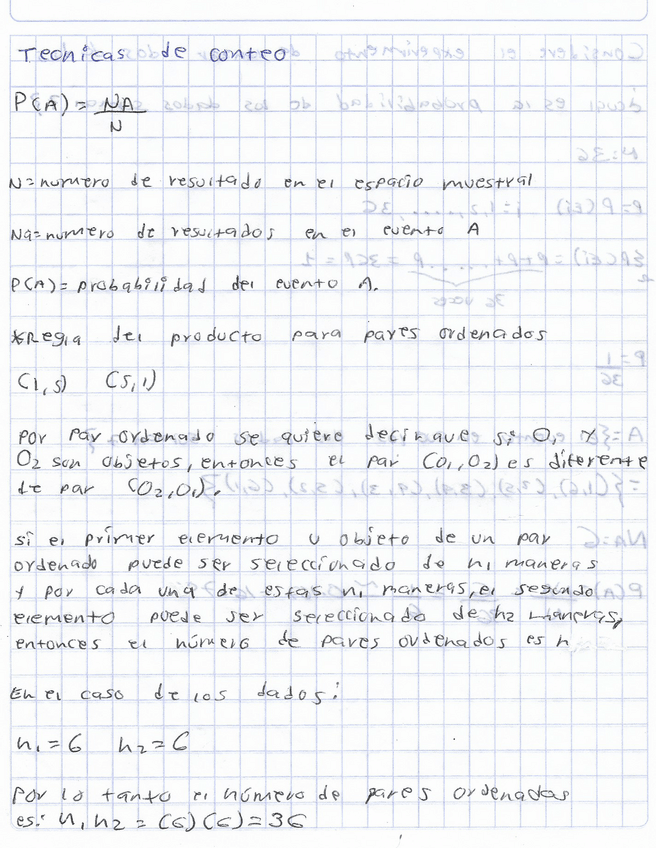 Tecnicas de conteo
P(A) = NA / N
N=numero de resultado en el espacio muestral
Na=numero de resultados en el evento A
P(A)=probabilidad del evento A.
*Regla del producto para pares ordenados
(1,5) (5,1)
Por Par ordenado se quiere decir que si O, y
O2 son objetos, entonces el par (O1,O2) es diferente
de par (O2,O1).
si el primer elemento u objeto de un par
ordenado puede ser seleccionado de n1 maneras
y por cada una de estas n1 maneras, el segundo
elemento puede ser seleccionado de n2 maneras,
entonces el número de pares ordenados es n
En el caso de los dados:
n1=6 n2=6
Por lo tanto el número de pares ordenados
es: n1n2 = (6)(6)=36